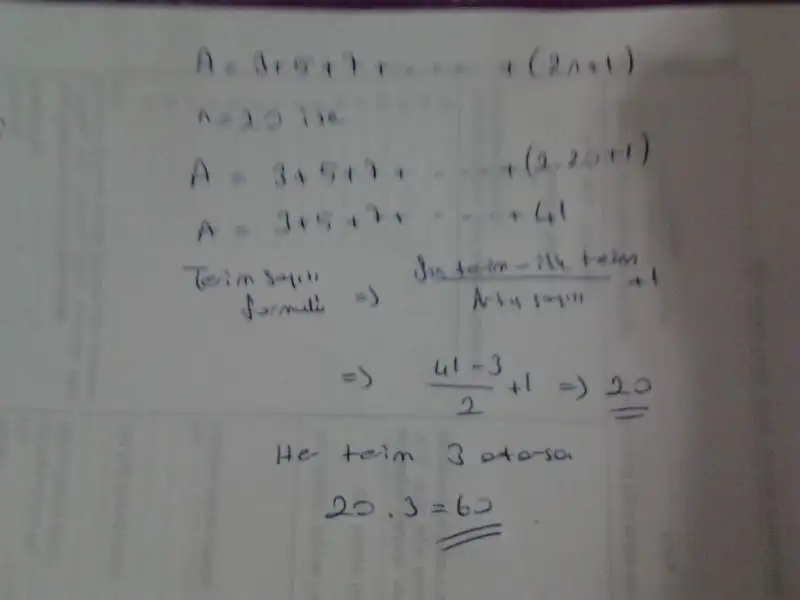 A = 3+5+7+ ....... +(2n+1)
n=20 ise
A = 3+5+7+ ......+(2.20+1)
A = 3+5+7+ ......+41
Terim sayısı formülü => Son terim - ilk terim / Artış sayısı +1
=> 41-3 / 2 +1 => 20
He terim 3 artarsa
20.3=60